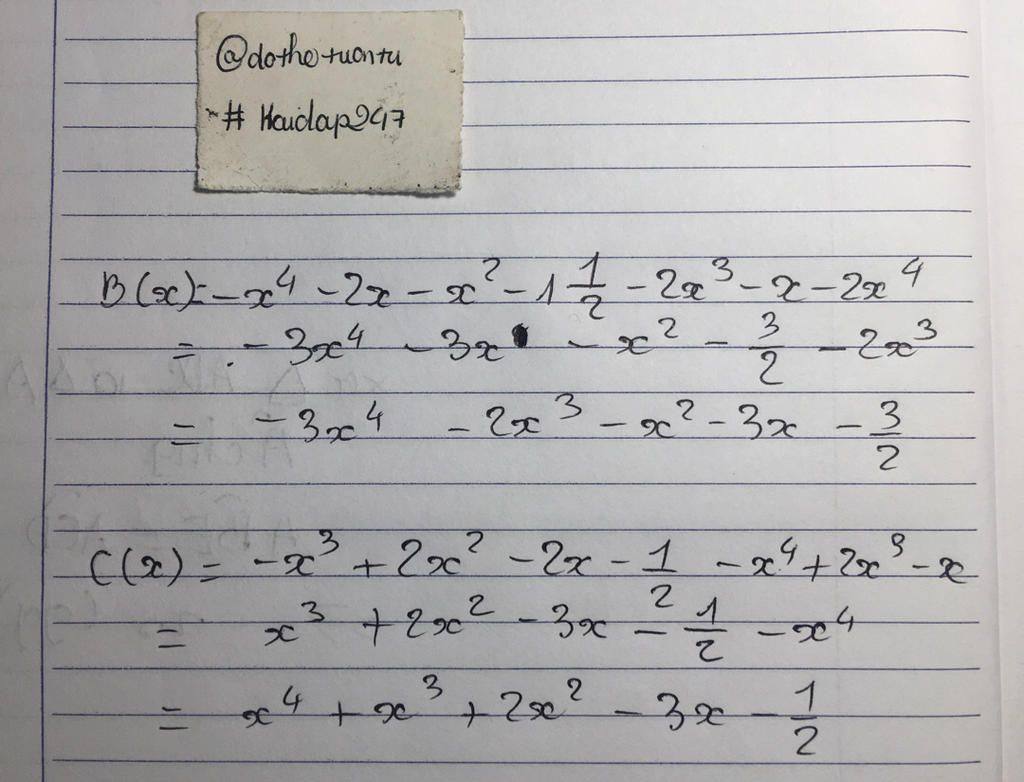 @dothetuantu
# Hoidap247
B(x)= -x⁴ - 2x - x² - 1 1/2 - 2x³ - x - 2x⁴
= - 3x⁴ - 3x - x² - 3/2 - 2x³
= -3x⁴ - 2x³ - x² - 3x - 3/2
C(x) = -x³ + 2x² - 2x - 1/2 - x⁴ + 2x³ - x
= x³ + 2x² - 3x - 1/2 - x⁴
= x⁴ + x³ + 2x² - 3x - 1/2